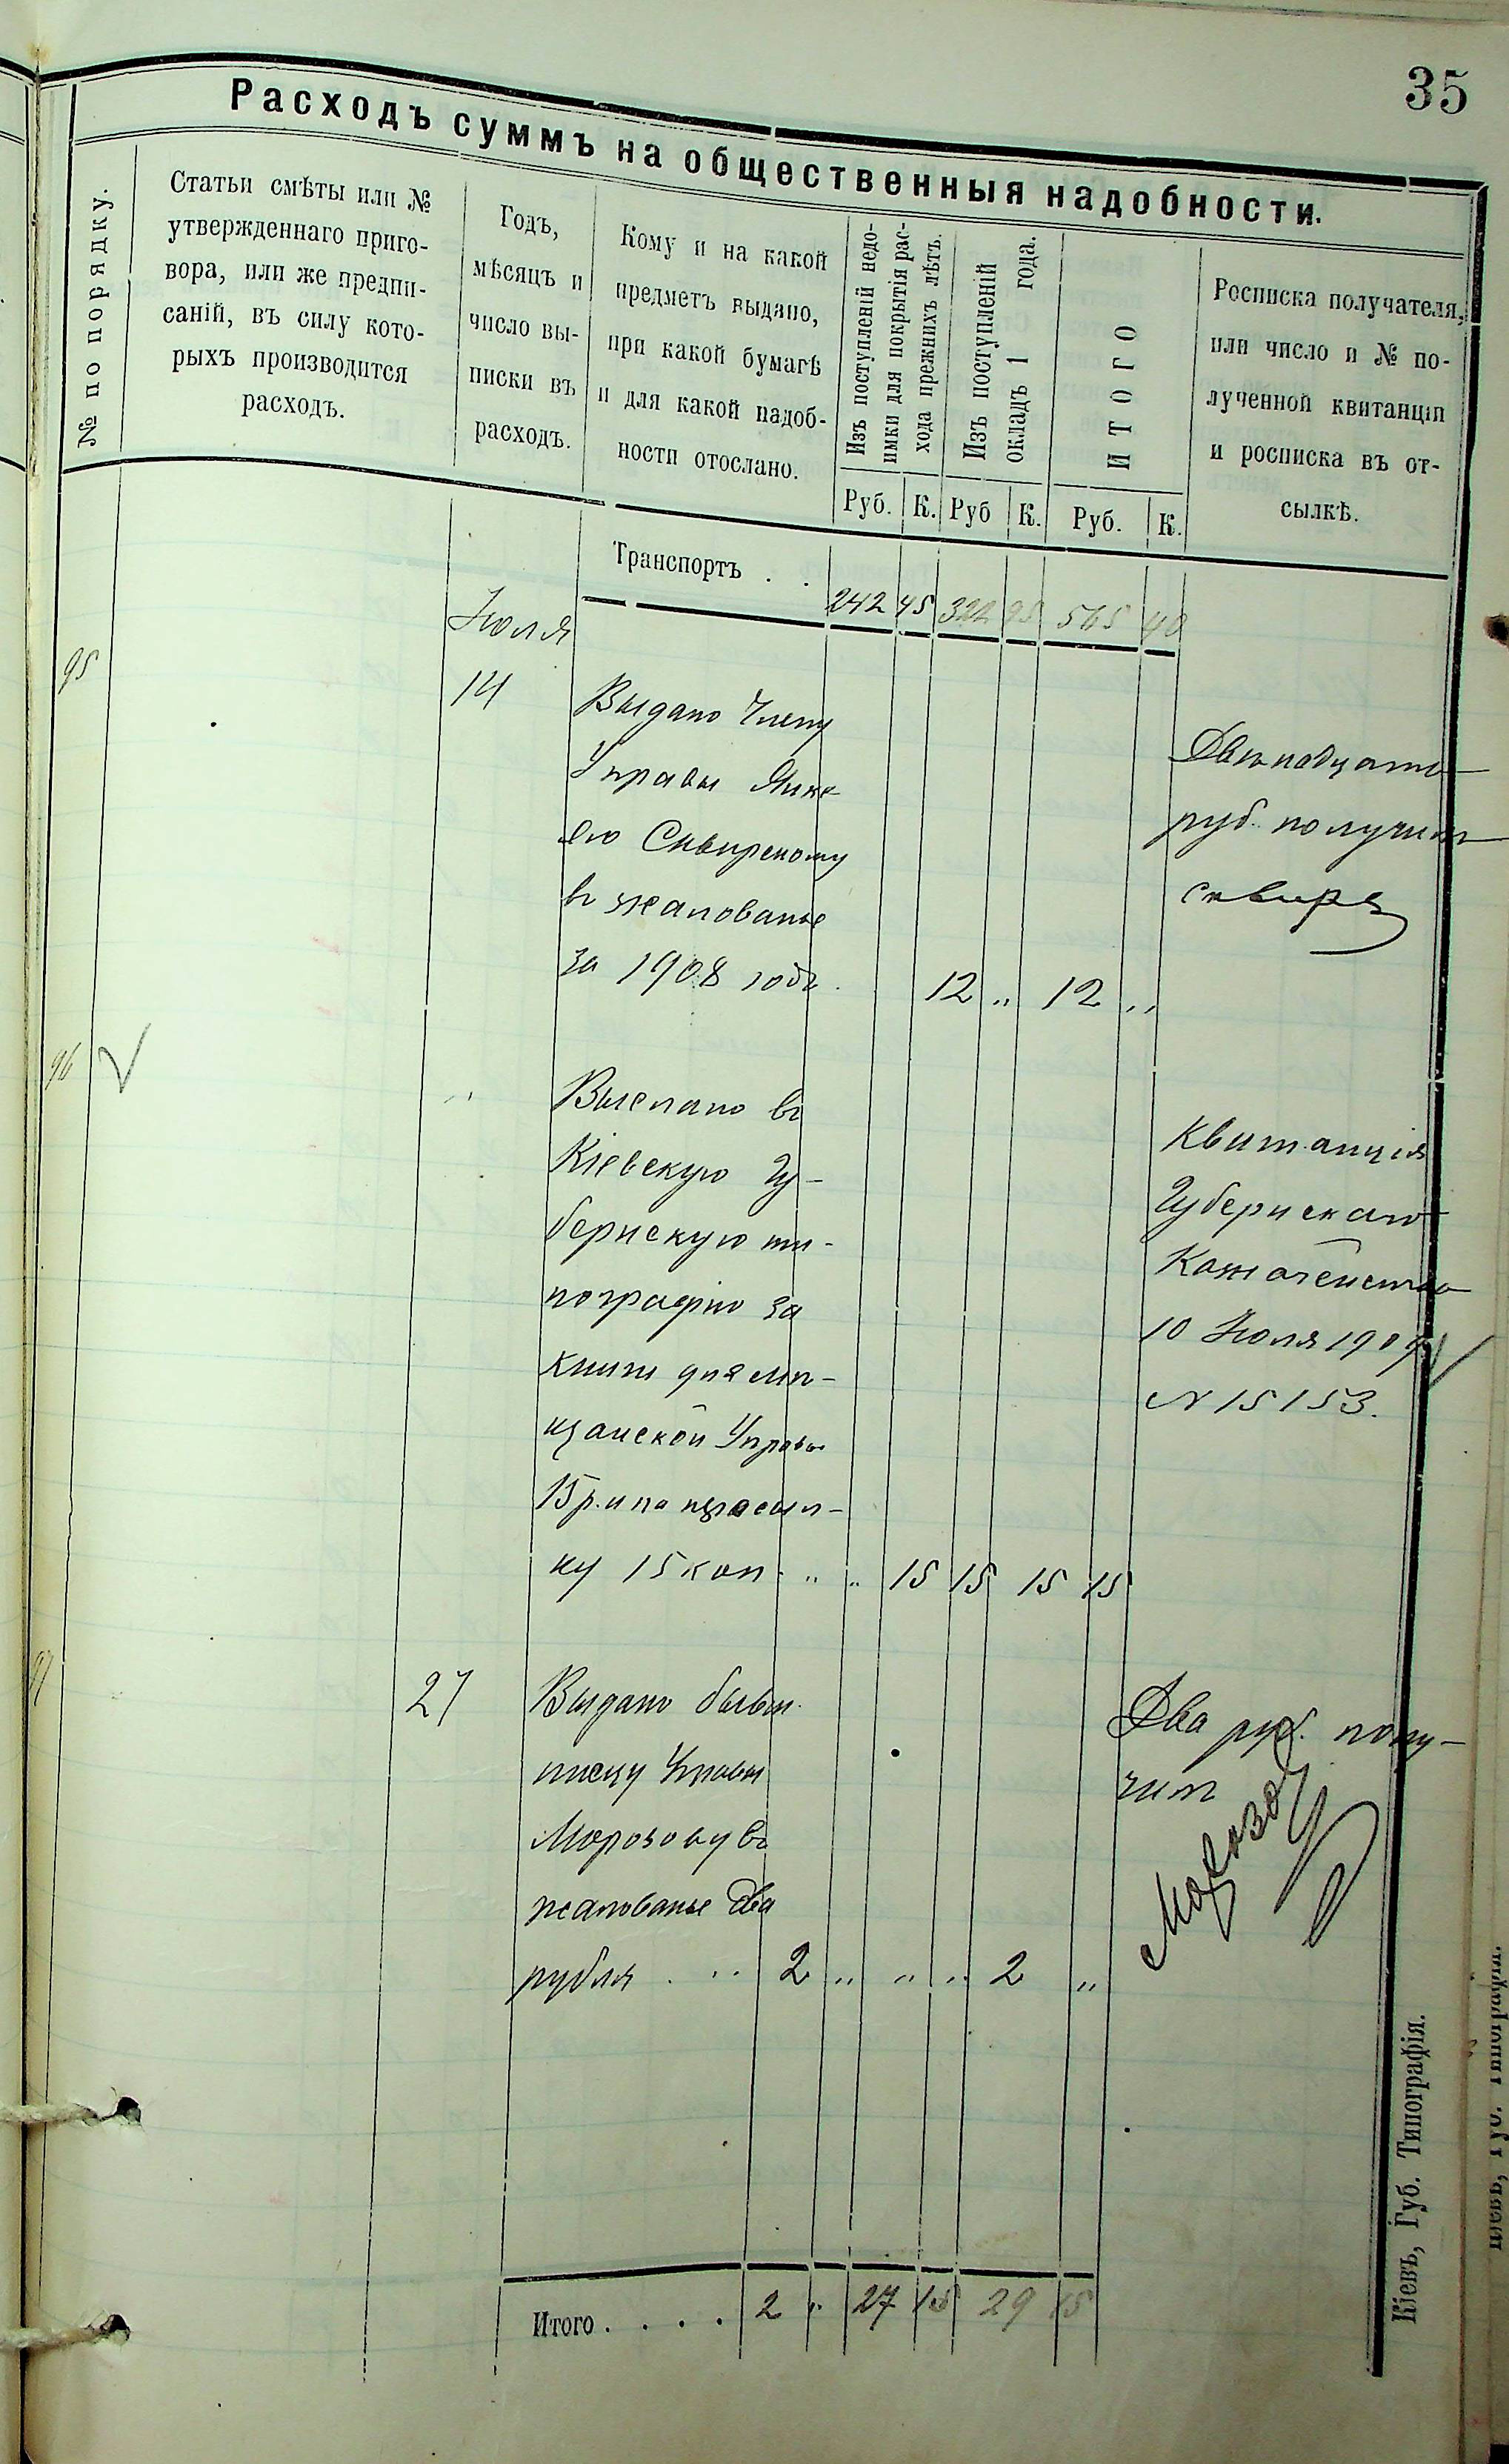 35
Расходъ суммъ на общественныя надобности.
№ по порядку.
Статьи смѣты или №
утвержденнаго приго-
вора, или же предпи-
саній, въ силу кото-
рыхъ производится
расходъ.
Годъ,
мѣсяцъ и
число вы-
писки въ
расходъ.
Кому и на какой
предметъ выдано,
при какой бумагѣ
и для какой надоб-
ности отослано.
Изъ поступленій недо-
имки для покрытія рас-
хода прежнихъ лѣтъ.
Изъ поступленій
окладъ 1 года.
ИТОГО
Росписка получателя,
или число и № по-
лученной квитанціи
и росписка въ от-
сылкѣ.
Руб. К. Руб К. Руб. К.
Транспортъ . . 242 45 322 95 565 40
Іюля
95
14
Выдано Члену
Управы Янке-
лю Сквирскому
въ жалованье
за 1908 годъ. 12 „ 12 „
Двѣнадцать
руб. получилъ
Сквирs
96
„
Выслано въ
Кіевскую Гу-
бернскую ти-
пографію за
книги для мѣ-
щанской Управы
15 р. и на пересыл-
ку 15 коп. „ „ 15 15 15 15
Квитанція
Губернскаго
Казначейства
10 Іюля 1909
№ 15153.
97
27
Выдано бывш.
писцу Управы
Морозову въ
жалованье два
рубля . . . 2 „ „ „ 2 „
Два руб. полу-
чилъ
Морозов
Итого . . . . 2 „ 27 15 29 15
Кіевъ, Губ. Типографія.